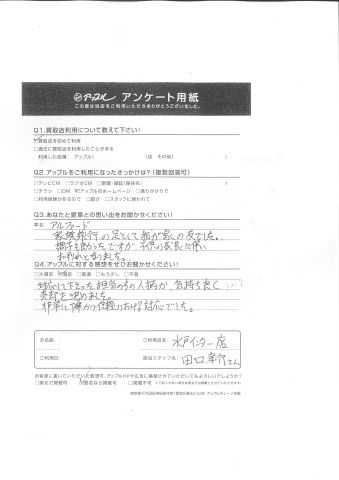 アップル アンケート用紙
この度は当店をご利用いただきありがとうございました。
Q1.買取店利用について教えて下さい!
買取店を初めて利用
□過去に買取店を利用したことがある
利用した店舗 アップル( )店 その他( )
Q2.アップルをご利用になったきっかけは?(複数回答可)
□テレビCM □ラジオCM □新聞・雑誌(媒体名 )
□チラシ □DM アップルのホームページ □通りがかりで
□利用経験があるので □紹介 □スタッフに誘われて
Q3.あなたと愛車との思い出をお聞かせください!
車名: アルファード
家族旅行の足として我が家の友でした。
調子も良かったですが、子供の成長に伴い
お別れとなりました。
Q4.アップルに対する感想をぜひお聞かせください!
□大満足 満足 □普通 □もう少し □不満
対応して下さった担当の方の人柄が、気持ち良く
売却を決めました。
非常に丁寧かつ信頼のおける対応でした。
お名前
ご利用店名: 水戸インター店
ご利用日
担当スタッフ名: 田口 さん
お客様に書いていただいた感想を、アップルHPや広告に掲載させていただいてもよろしいでしょうか?
□実名で掲載可 匿名なら掲載可 □掲載不可